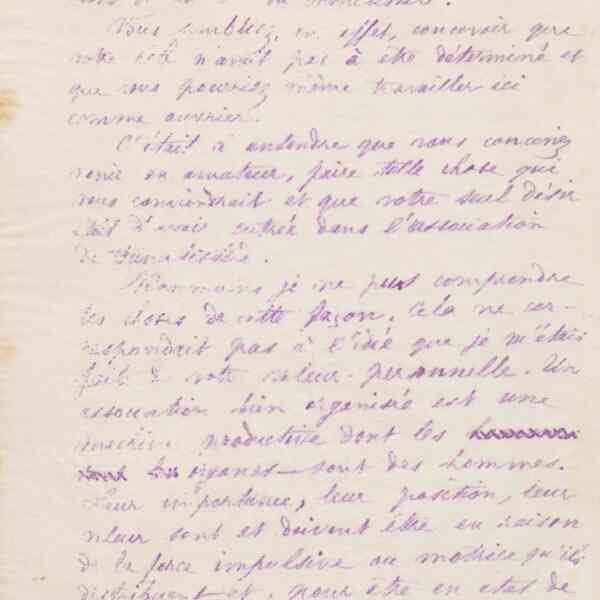 Vous sembliez, en effet, concevoir que
votre rôle n'avait pas à être déterminé et
que vous pourriez même travailler ici
comme ouvrier.
C'était à entendre que vous conceviez
venir en amateur, faire telle chose qui
vous conviendrait et que votre seul désir
était d'avoir entrée dans l'association
de Guise.
Non monsieur je ne puis comprendre
les choses de cette façon. Cela ne cor-
respondrait pas à l'idée que je m'étais
faite de votre valeur personnelle. Un
association bien organisée est une
machine productive dont les
organes sont des hommes.
Leur importance, leur position, leur
valeur sont et doivent être en raison
de la force impulsive ou motrice qu'ils
distribuent et, pour être en état de